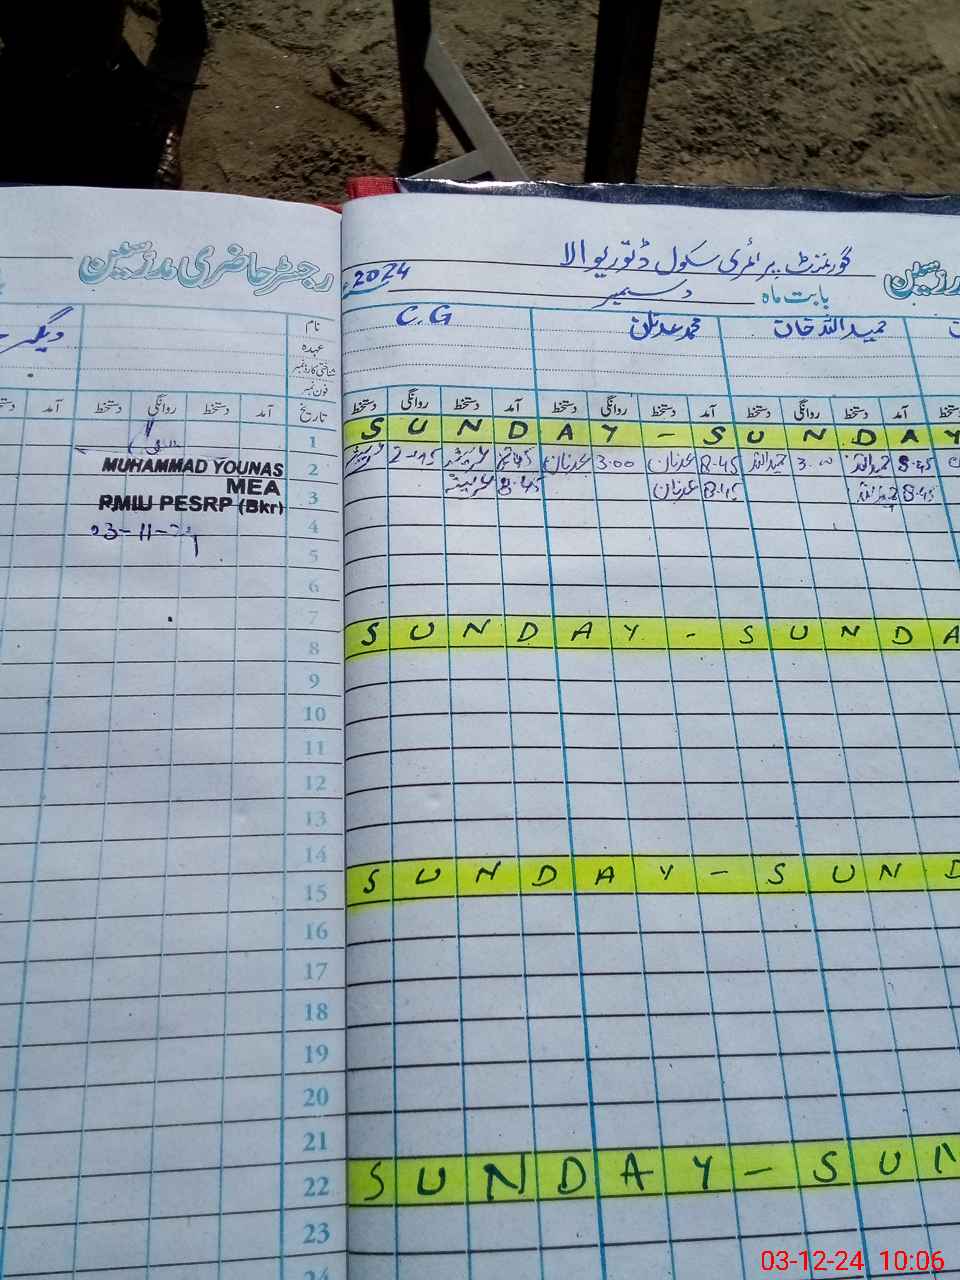 رجسٹر حاضری مدرسین
نام
عہدہ
شناختی کارڈ نمبر
فون نمبر
آمد دستخط روانگی دستخط تاریخ
MUHAMMAD YOUNAS
MEA
PMIU PESRP (Bkr)
1
2
3
4
5
6
7
8
9
10
11
12
13
14
15
16
17
18
19
20
21
22
23
24
گورنمنٹ پرائمری سکول
بابت ماہ دسمبر 2024
حمید اللہ خان محمد عدنان C.G
آمد دستخط روانگی دستخط آمد دستخط روانگی دستخط آمد دستخط روانگی دستخط
S U N D A Y - S U N D A Y
8.45 حمید اللہ 3.00 حمید اللہ 8.45 عدنان 3.00 عدنان 2-45
8.45 حمید اللہ 8.45 عدنان 8.45
S U N D A Y - S U N D A
S U N D A Y - S U N D
S U N D A Y - S U N
03-12-24 10:06